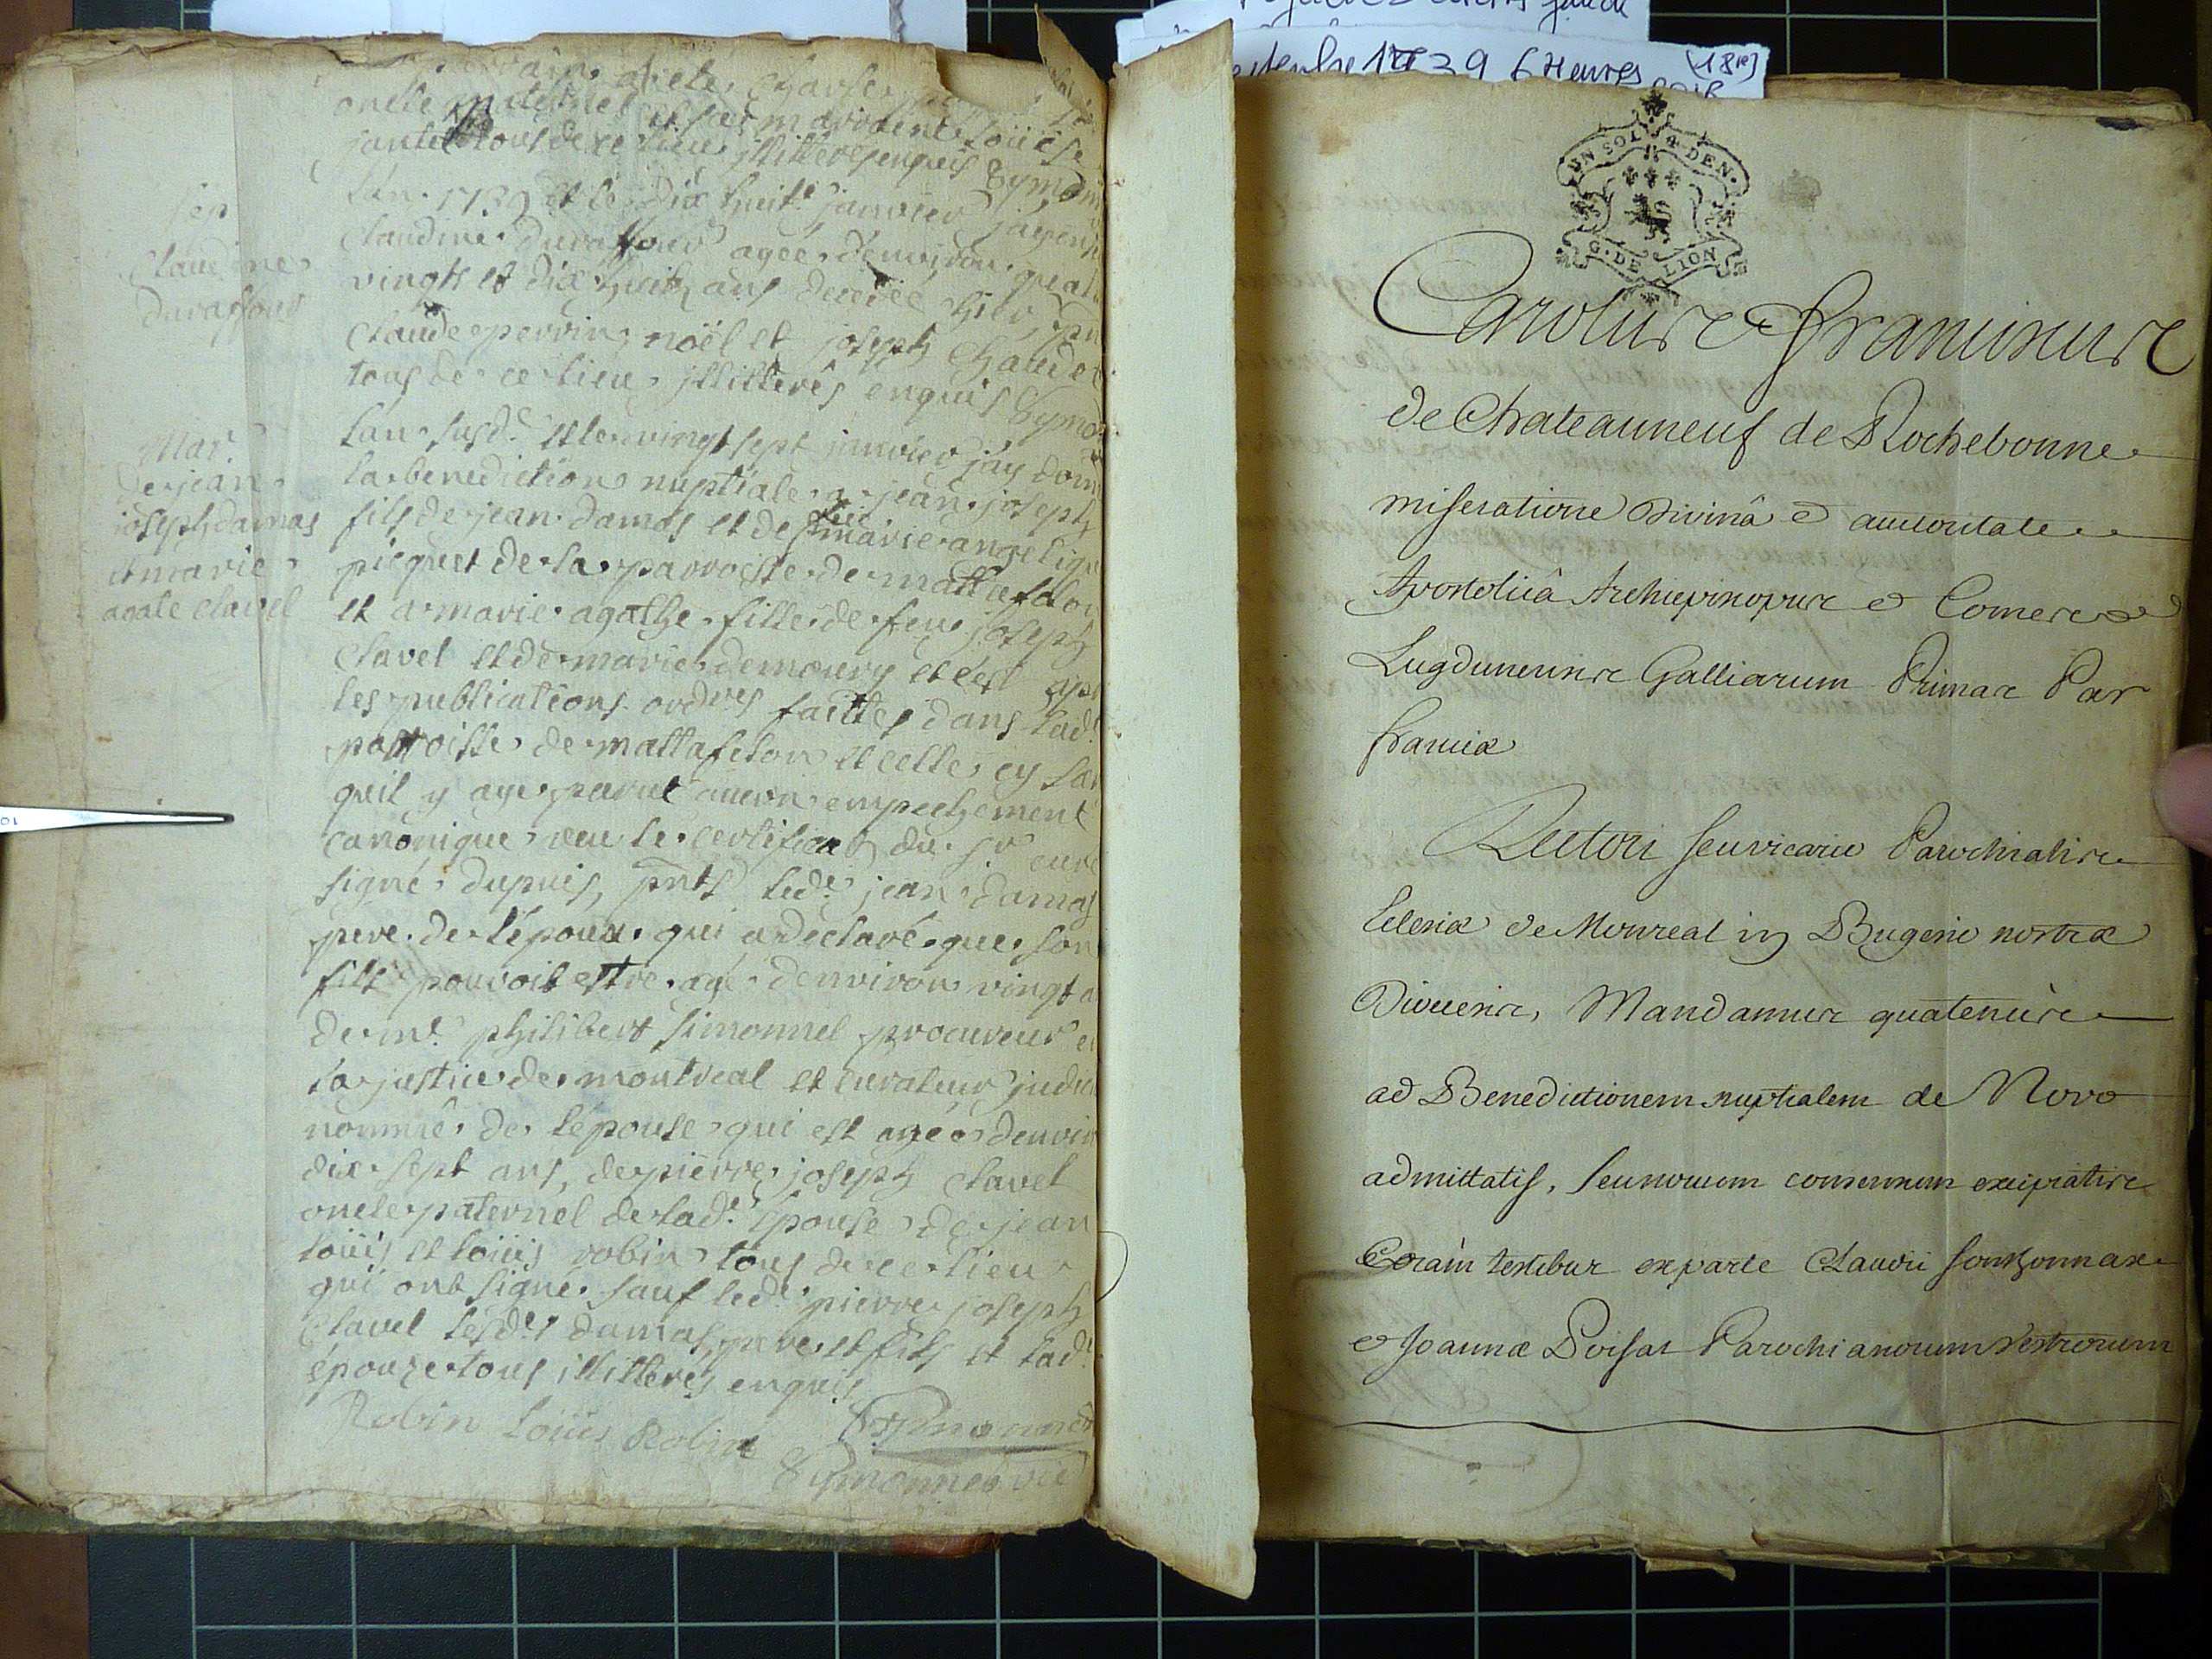 oncle paternel et sa marraine loüise
tous de ce lieu illitterés enquis Symon
sep
Claudine
duraffour
L'an 1739 et le dix huit janvier j'ay
Claudine duraffour agée d'environ quat
vingts et dix huit ans decedée hier
Claude perrin, noël et joseph
tous de ce lieu illitterés enquis Symo
Mar.
de jean
joseph damas
et marie
agate clavel
L'an susd. et le vingt sept janvier j'ay donn
la benediction nuptiale a jean joseph
fils de jean damas et de marie angeliqu
picquet de la parroisse de mattafelon
et a marie agathe fille de feu joseph
Clavel et de marie demoury et c'est apr
les publications ordres faittes dans lad.
parroisse de mattafelon et celle cy san
qu'il y aye parut aucun empechement
canonique veu le certificat du sr curé
signé dupuis, pnts led. jean damas
pere de l'époux qui a declaré que son
fils pouvoit estre agé d'environ vingt a
de me philibert simonnel procureur e
la justice de montreal et curateur judic
nommé de l'épouse qui est agée d'envir
dix sept ans, de pierre joseph Clavel
oncle paternel de lad. épouse de jean
loüis et loüis robin tous de ce lieu
qui ont signé sauf led. pierre joseph
Clavel lesd. damas pere et fils et lad.
épouze tous illitterés enquis
Robin Loüis Robin
UN SOL 4 DEN.
G. DE LION
Carolus Franciscus
de Chateauneuf de Rochebonne
miseratione Divinâ et auctoritate
Apostolicâ Archiepiscopus et Comes
Lugdunensis Galliarum Primas Par
franciæ
Rectori seu vicario Parochialis
Ecclesiæ de Monreal in Bugesio nostræ
Dioecesis, Mandamus quatenùs
ad Benedictionem nuptialem de Novo
admittatis, seu novum consensum excipiatis
Coràm testibus ex parte Claudii sonthonnax
et Joannæ Poisat Parochianorum Vestrorum